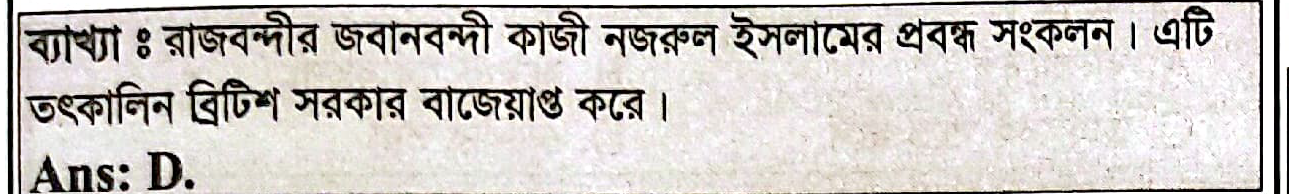 ব্যাখ্যা ঃ রাজবন্দীর জবানবন্দী কাজী নজরুল ইসলামের প্রবন্ধ সংকলন। এটি
তৎকালিন ব্রিটিশ সরকার বাজেয়াপ্ত করে।
Ans: D.